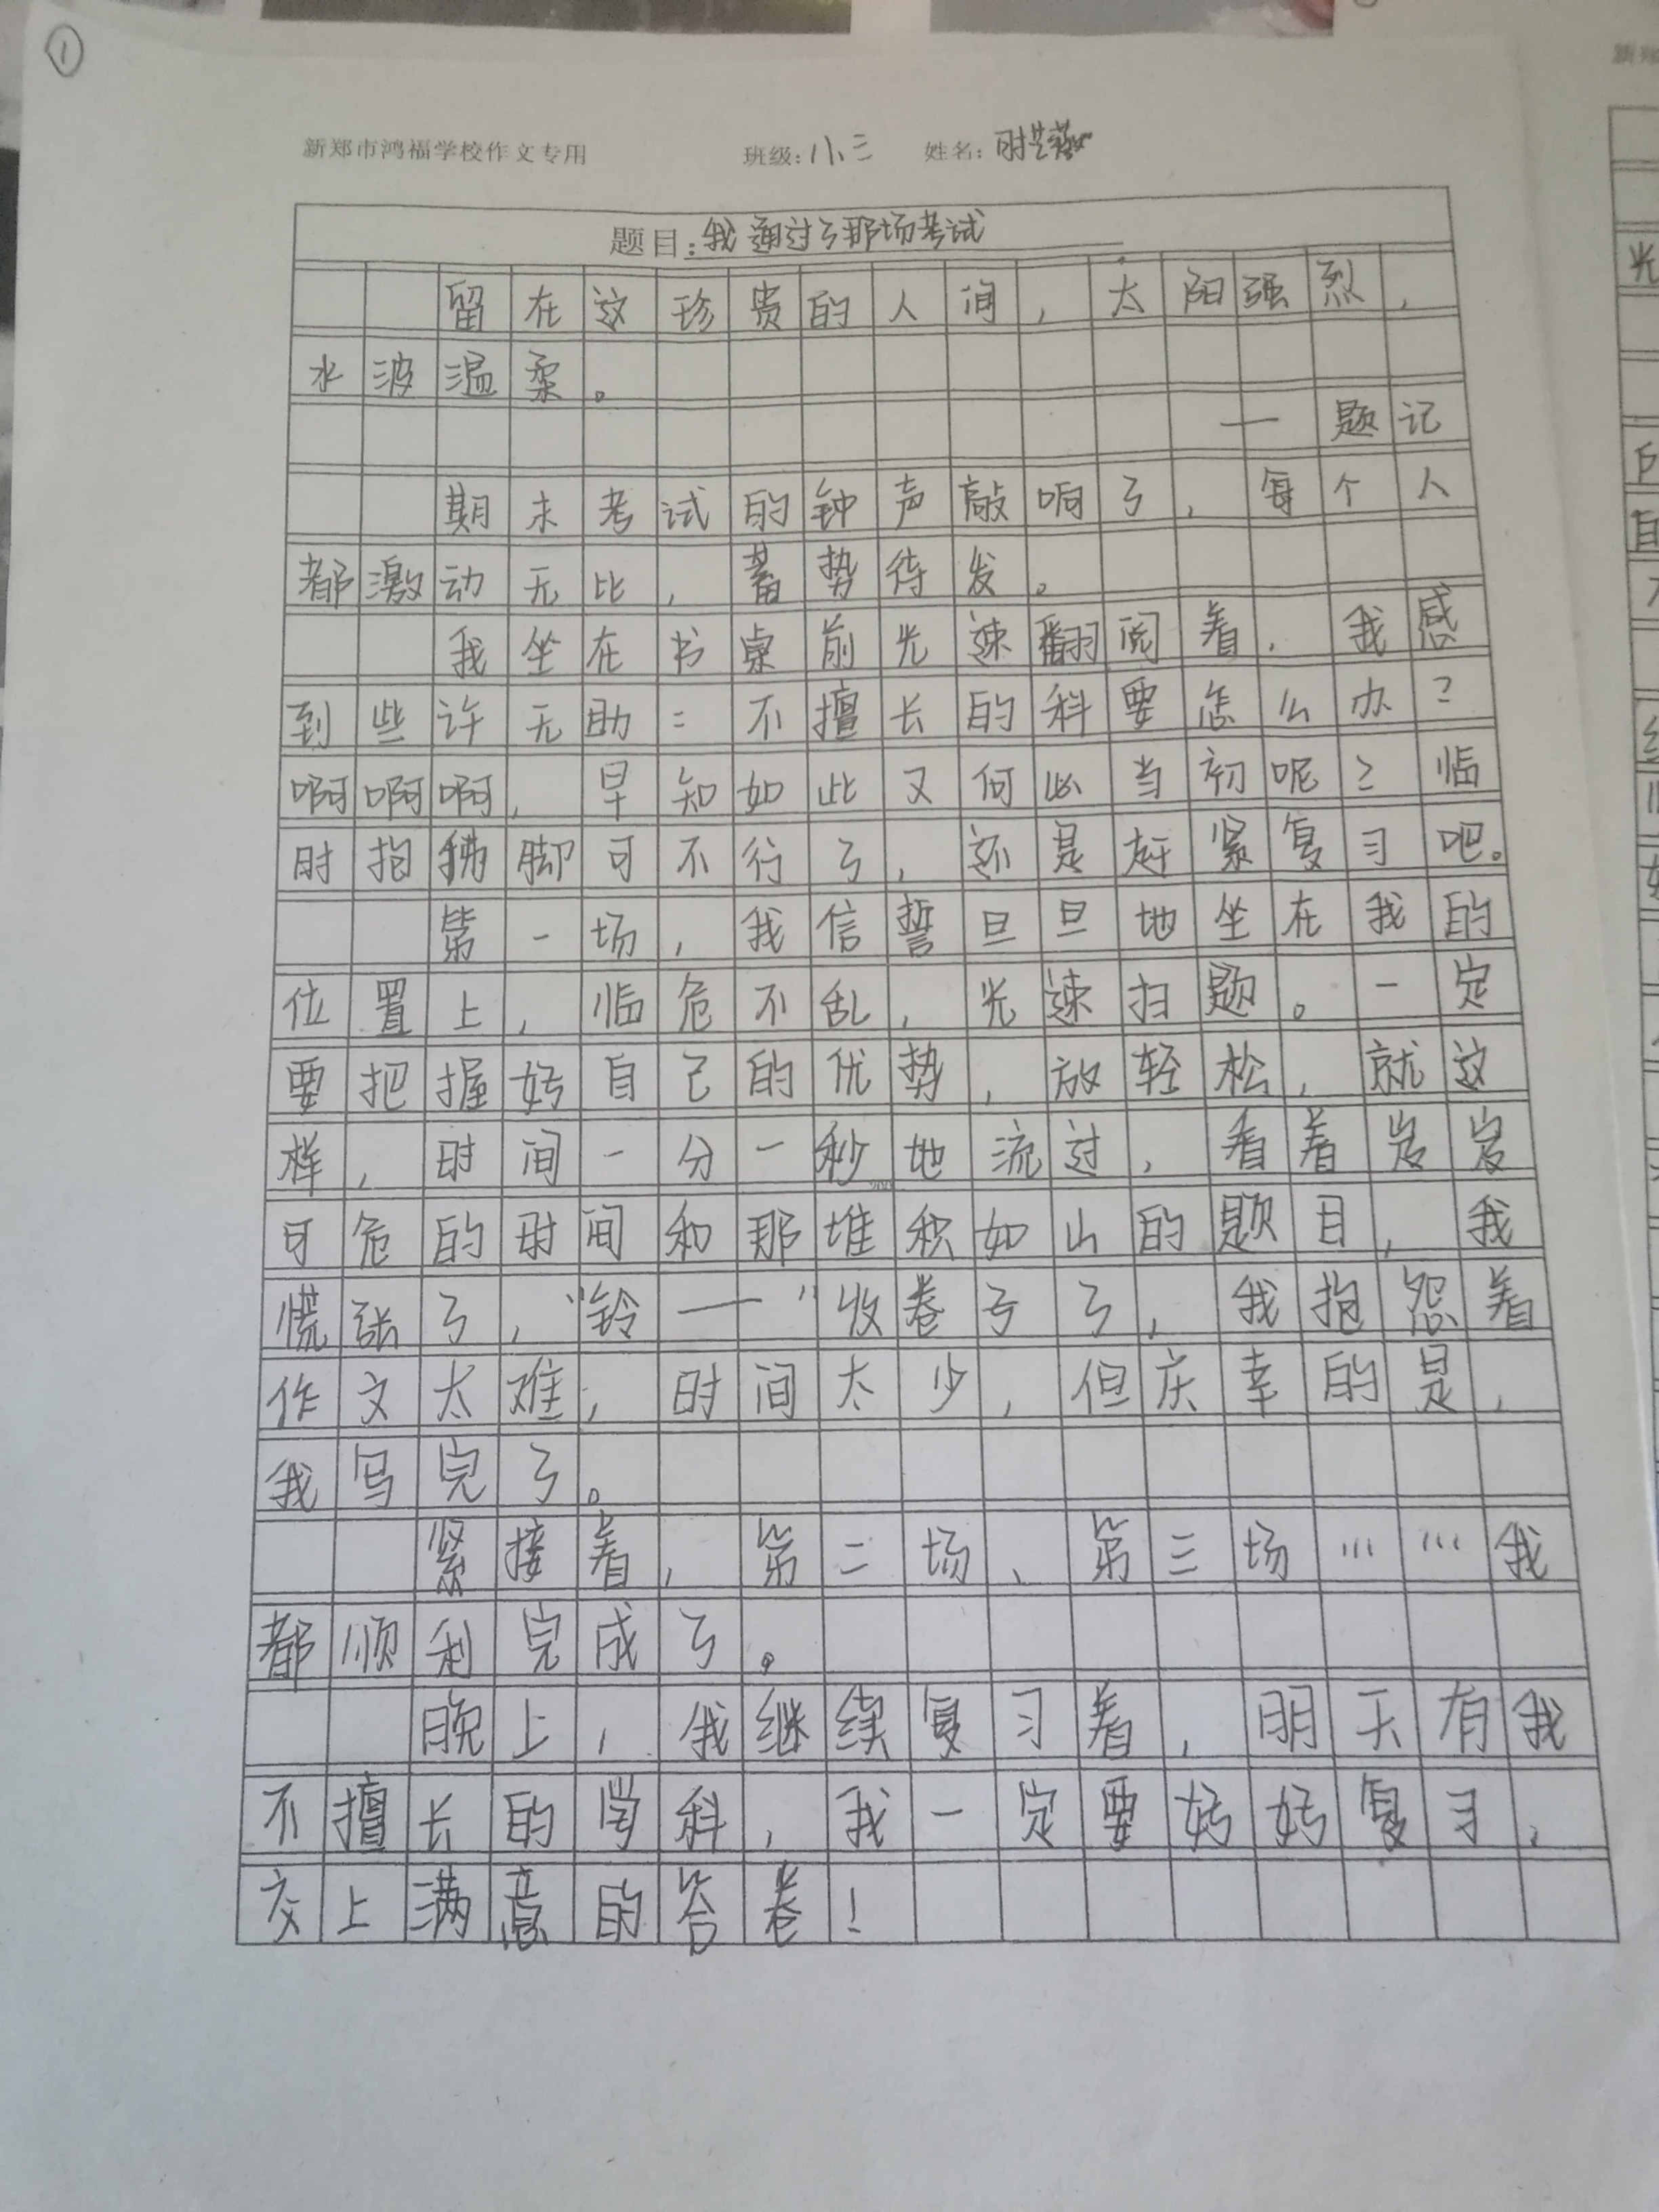 ①
新郑市鸿福学校作文专用 班级:小三 姓名:时芸
题目:我通过了那场考试
留在这珍贵的人间,太阳强烈,
水波温柔。
——题记
期末考试的钟声敲响了,每个人
都激动无比,蓄势待发。
我坐在书桌前光速翻阅着,我感
到些许无助:不擅长的科要怎么办?
啊啊啊,早知如此又何必当初呢?临
时抱佛脚可不行了,还是赶紧复习吧。
第一场,我信誓旦旦地坐在我的
位置上,临危不乱,光速扫题。一定
要把握好自己的优势,放轻松,就这
样,时间一分一秒地流过,看着岌岌
可危的时间和那堆积如山的题目,我
慌张了,“铃——”收卷了,我抱怨着
作文太难,时间太少,但庆幸的是,
我写完了。
紧接着,第二场、第三场……我
都顺利完成了。
晚上,我继续复习着,明天有我
不擅长的学科,我一定要好好复习,
交上满意的答卷!
新郑
光
自